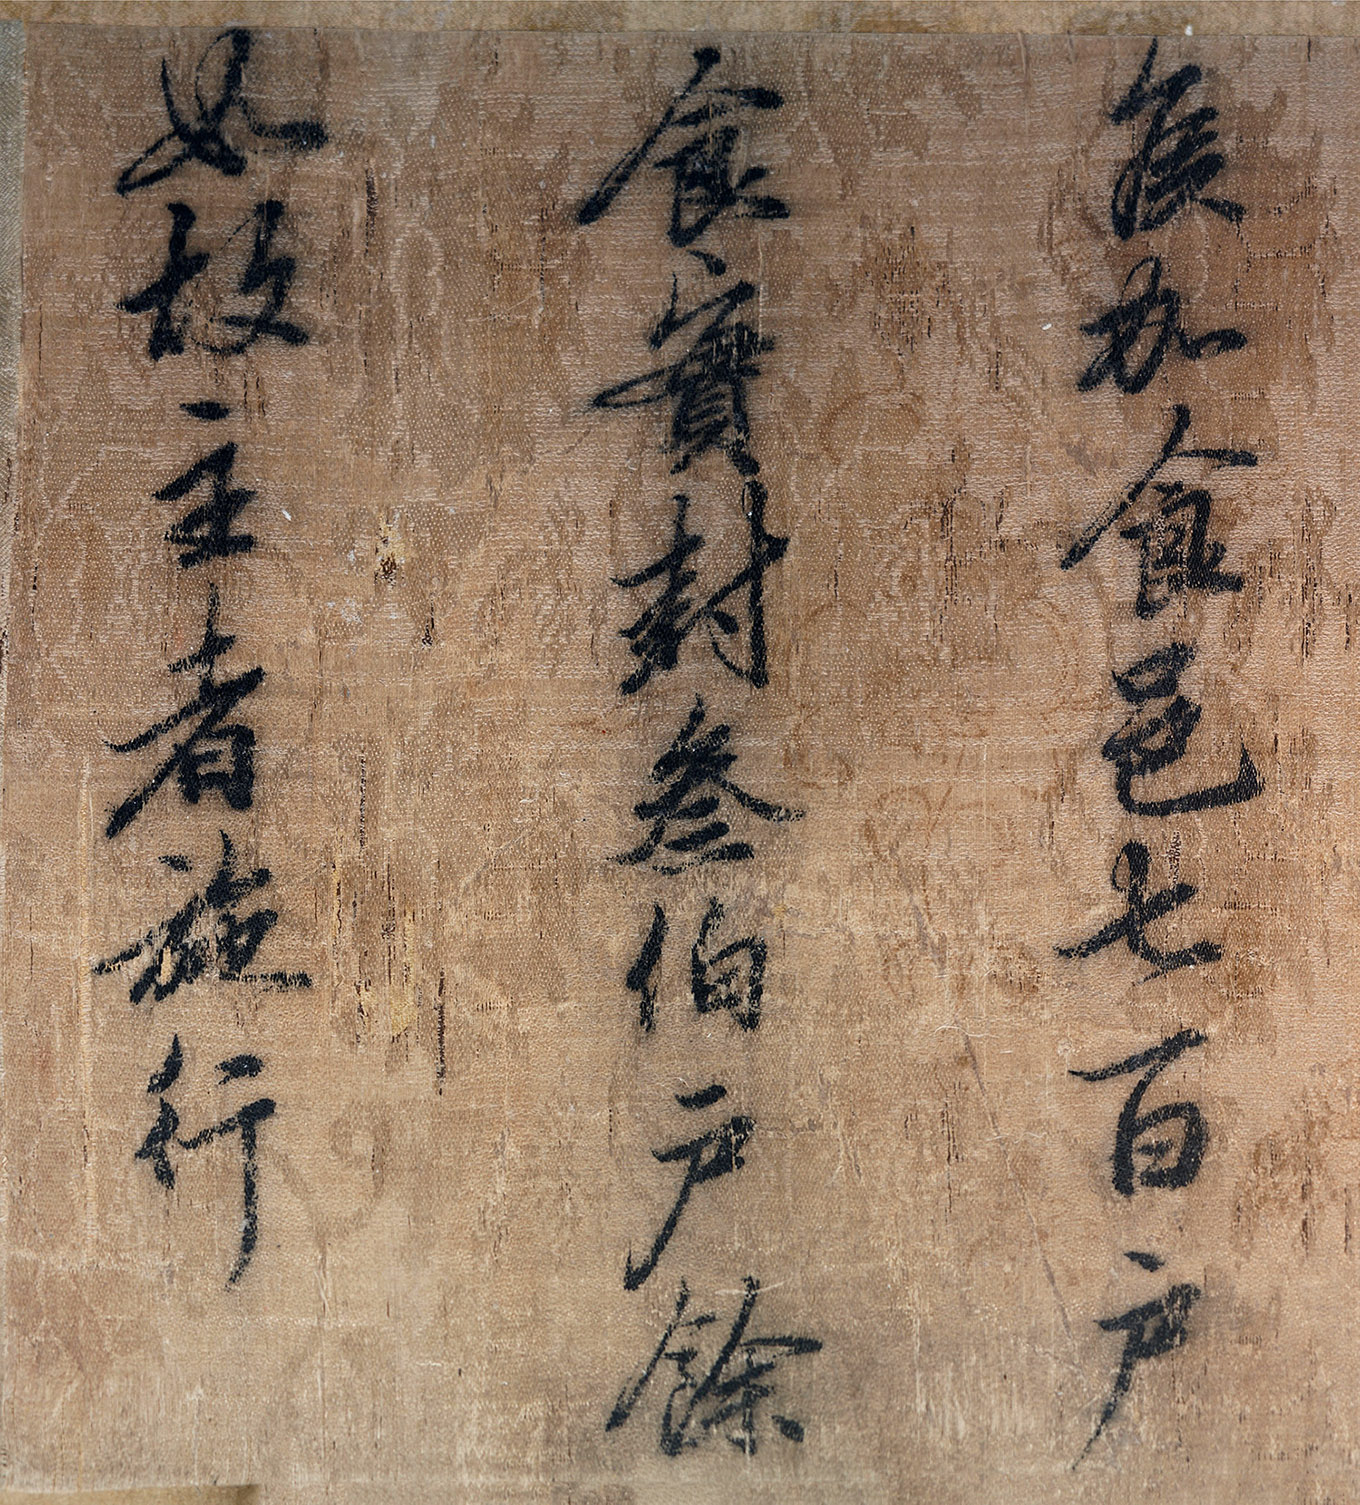 侯加食邑七百户
食實封叁伯户餘
如故主者施行